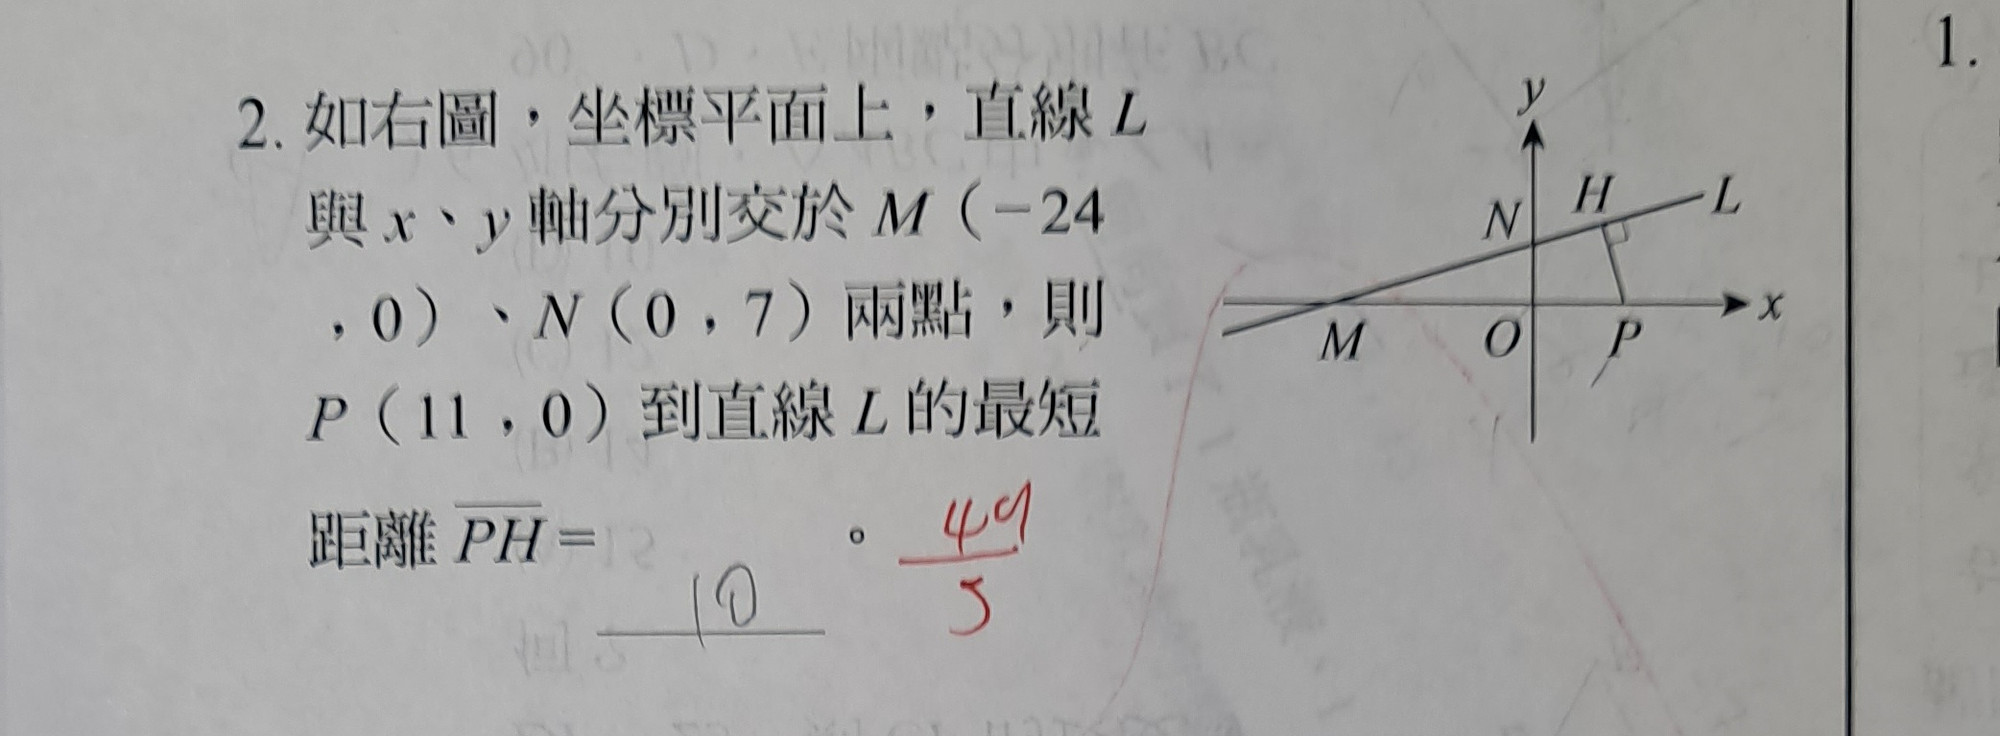 2. 如右圖，坐標平面上，直線 L
與 x、y 軸分別交於 M（－24
，0）、N（0，7）兩點，則
P（11，0）到直線 L 的最短
距離 PH＝ 10 。 49/5
y
N H L
M O P x
1.